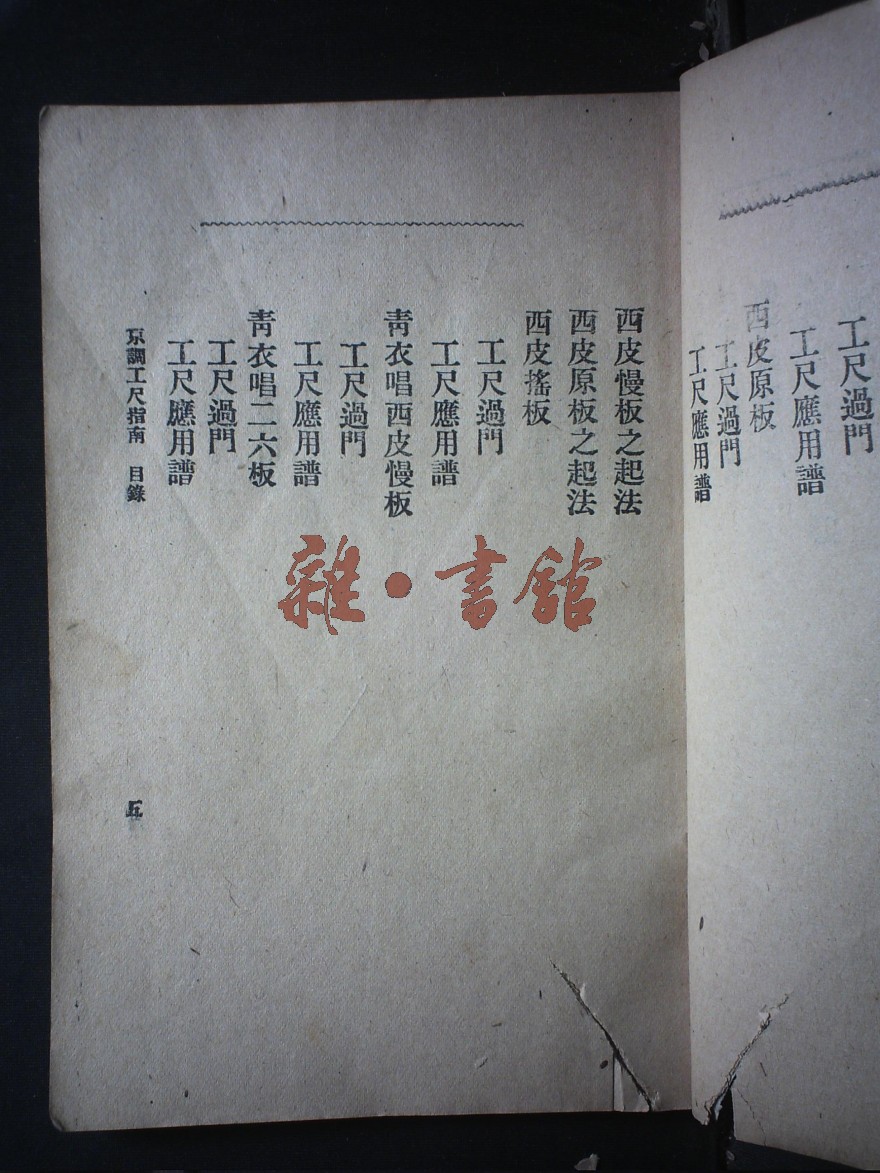 工尺過門
工尺應用譜
西皮原板
工尺過門
工尺應用譜
西皮慢板之起法
西皮原板之起法
西皮搖板
工尺過門
工尺應用譜
青衣唱西皮慢板
工尺過門
工尺應用譜
青衣唱二六板
工尺過門
工尺應用譜
京調工尺指南 目錄
五
雜·書館